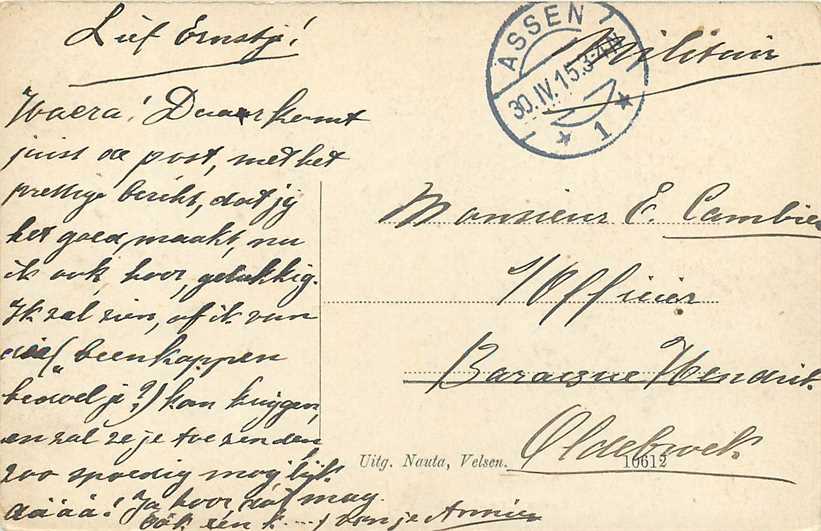 Lief Ernstje!
Hoera! Daar komt
juist de post, met het
prettige bericht, dat jij
het goed maakt, nu
ik ook, hoor, gelukkig.
Ik zal zien, of ik van
die "beenkappen
bedoel je?) kan krijgen,
en zal ze je toezenden
zoo spoedig mogelijk.
dááá! Ja hoor, dat mag.
ook één k.... van je Annie
ASSEN
30.IV.15.3-4N
1
Militair
Monsieur E. Cambier
s/Officier
Baraque Hendrik
Oldebroek
Uitg. Nauta, Velsen. 10612